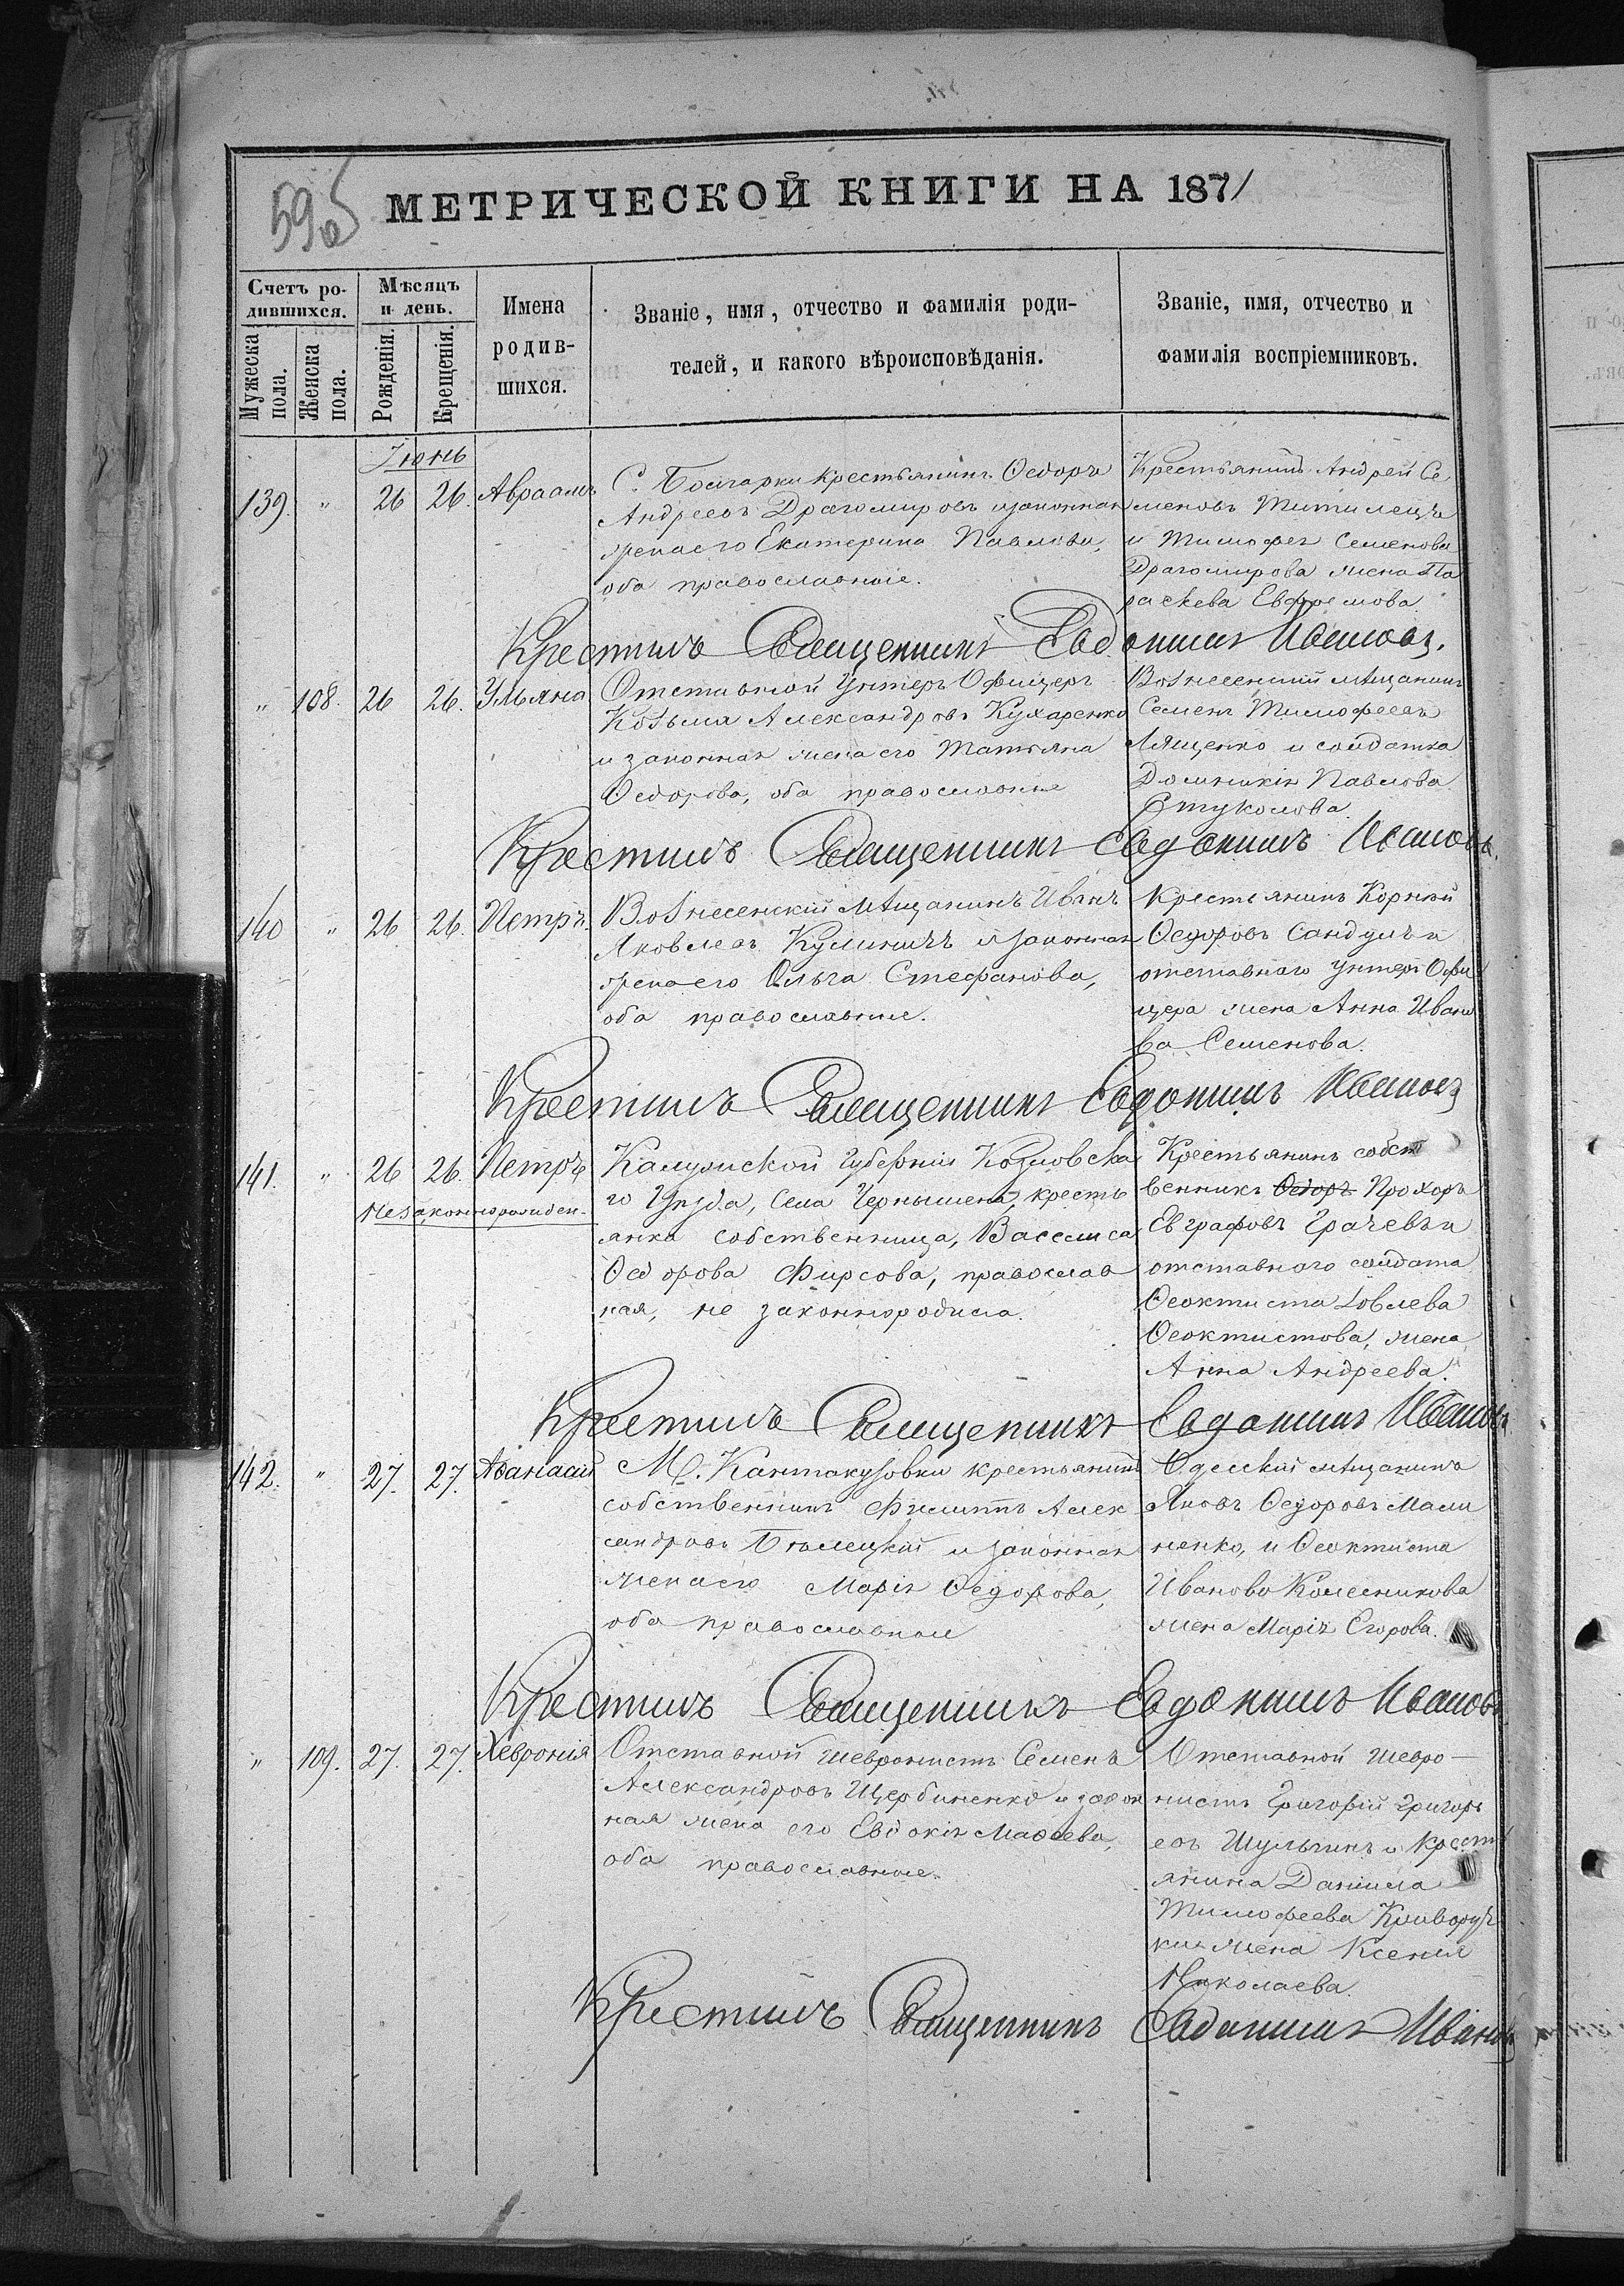 59об
МЕТРИЧЕСКОЙ КНИГИ НА 1871
Счетъ ро-
дившихся.
Мужеска
пола.
Женска
пола.
Мѣсяцъ
и день.
Рожденія.
Крещенія.
Имена
родив-
шихся.
Званіе, имя, отчество и фамилія роди-
телей, и какого вѣроисповѣданія.
Званіе, имя, отчество и
фамилія воспріемниковъ.
Іюнь
139. " 26 26. Авраамъ
С. Болгарки крестьянинъ Ѳедоръ
Андреевъ Драгомировъ и законная
жена его Екатерина Павлова,
оба православные.
Крестьянинъ Андрей Се
меновъ Титилецъ
и Тимофея Семенова
Драгомирова жена Па
раскева Ефремова.
Крестилъ Священникъ Евдокимъ Ивановъ.
" 108. 26 26. Ульяна
Отставной Унтеръ Офицеръ
Козьма Александровъ Кухаренко
и законная жена его Татьяна
Ѳедорова, оба православные
Вознесенскій мѣщанинъ
Семенъ Тимофеевъ
Лященко и солдатка
Домникія Павлова
Стуколова.
Крестилъ Священникъ Евдокимъ Ивановъ.
140 " 26 26. Петръ.
Вознесенскій мѣщанинъ Иванъ
Яковлевъ Кулиничъ и законная
жена его Ольга Стефанова,
оба православные.
Крестьянинъ Корній
Ѳедоровъ Сандулъ и
отставного Унтеръ Офи
цера жена Анна Ивано
ва Семенова.
Крестилъ Священникъ Евдокимъ Ивановъ
141. " 26 26. Петръ
незаконнорожден.
Калужской Губерніи Козловска
го Уѣзда, Села Чернышена, кресть
янка собственница, Васелиса
Ѳедорова Фирсова, православ
ная, не законнородила.
Крестьянинъ собст
венникъ Ѳедоръ Прохоръ
Евграфовъ Грачевъ и
отставного солдата
Ѳеоктиста
Ѳеоктистова, жена
Анна Андреева.
Крестилъ Священникъ Евдокимъ Ивановъ
142. " 27. 27. Аѳанасій
М. Кантакузовки крестьянинъ
собственникъ Филиппъ Алек
сандровъ Бѣлецкій и законная
жена его Марія Ѳедорова,
оба православные
Одесскій мѣщанинъ
Яковъ Ѳедоровъ Мали
ненко, и Ѳеоктиста
Иванова Колесникова
жена Марія Егорова.
Крестилъ Священникъ Евдокимъ Ивановъ
" 109. 27. 27. Хевронія
Отставной шевронистъ Семенъ
Александровъ Щербиненко и закон
ная жена его Евдокія Маѳеева,
оба православные.
Отставной шевро-
нистъ Григорій Григорь
евъ Шульгинъ и крестъ
янина Даніила
Тимофеева Криворуч
ки жена Ксенія
Николаева.
Крестилъ Священникъ Евдокимъ Ивановъ